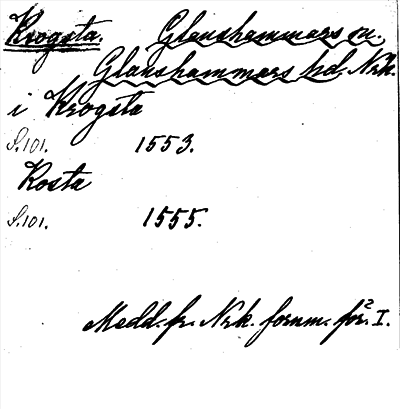 Krogsta. Glanshammars sn.
Glanshammars hd. Nrk.
i Krogsta
S.101. 1553.
Kosta
S.101. 1555.
Medd. fr. Nrk. fornm. för. I.